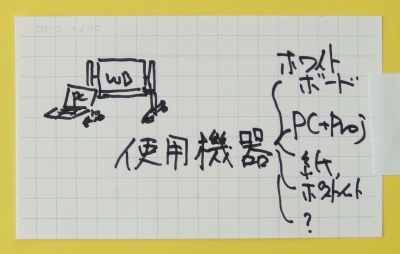 WD
PC
使用機器
ホワイト
ボード
PC+Proj
紙,
ポストイット
?